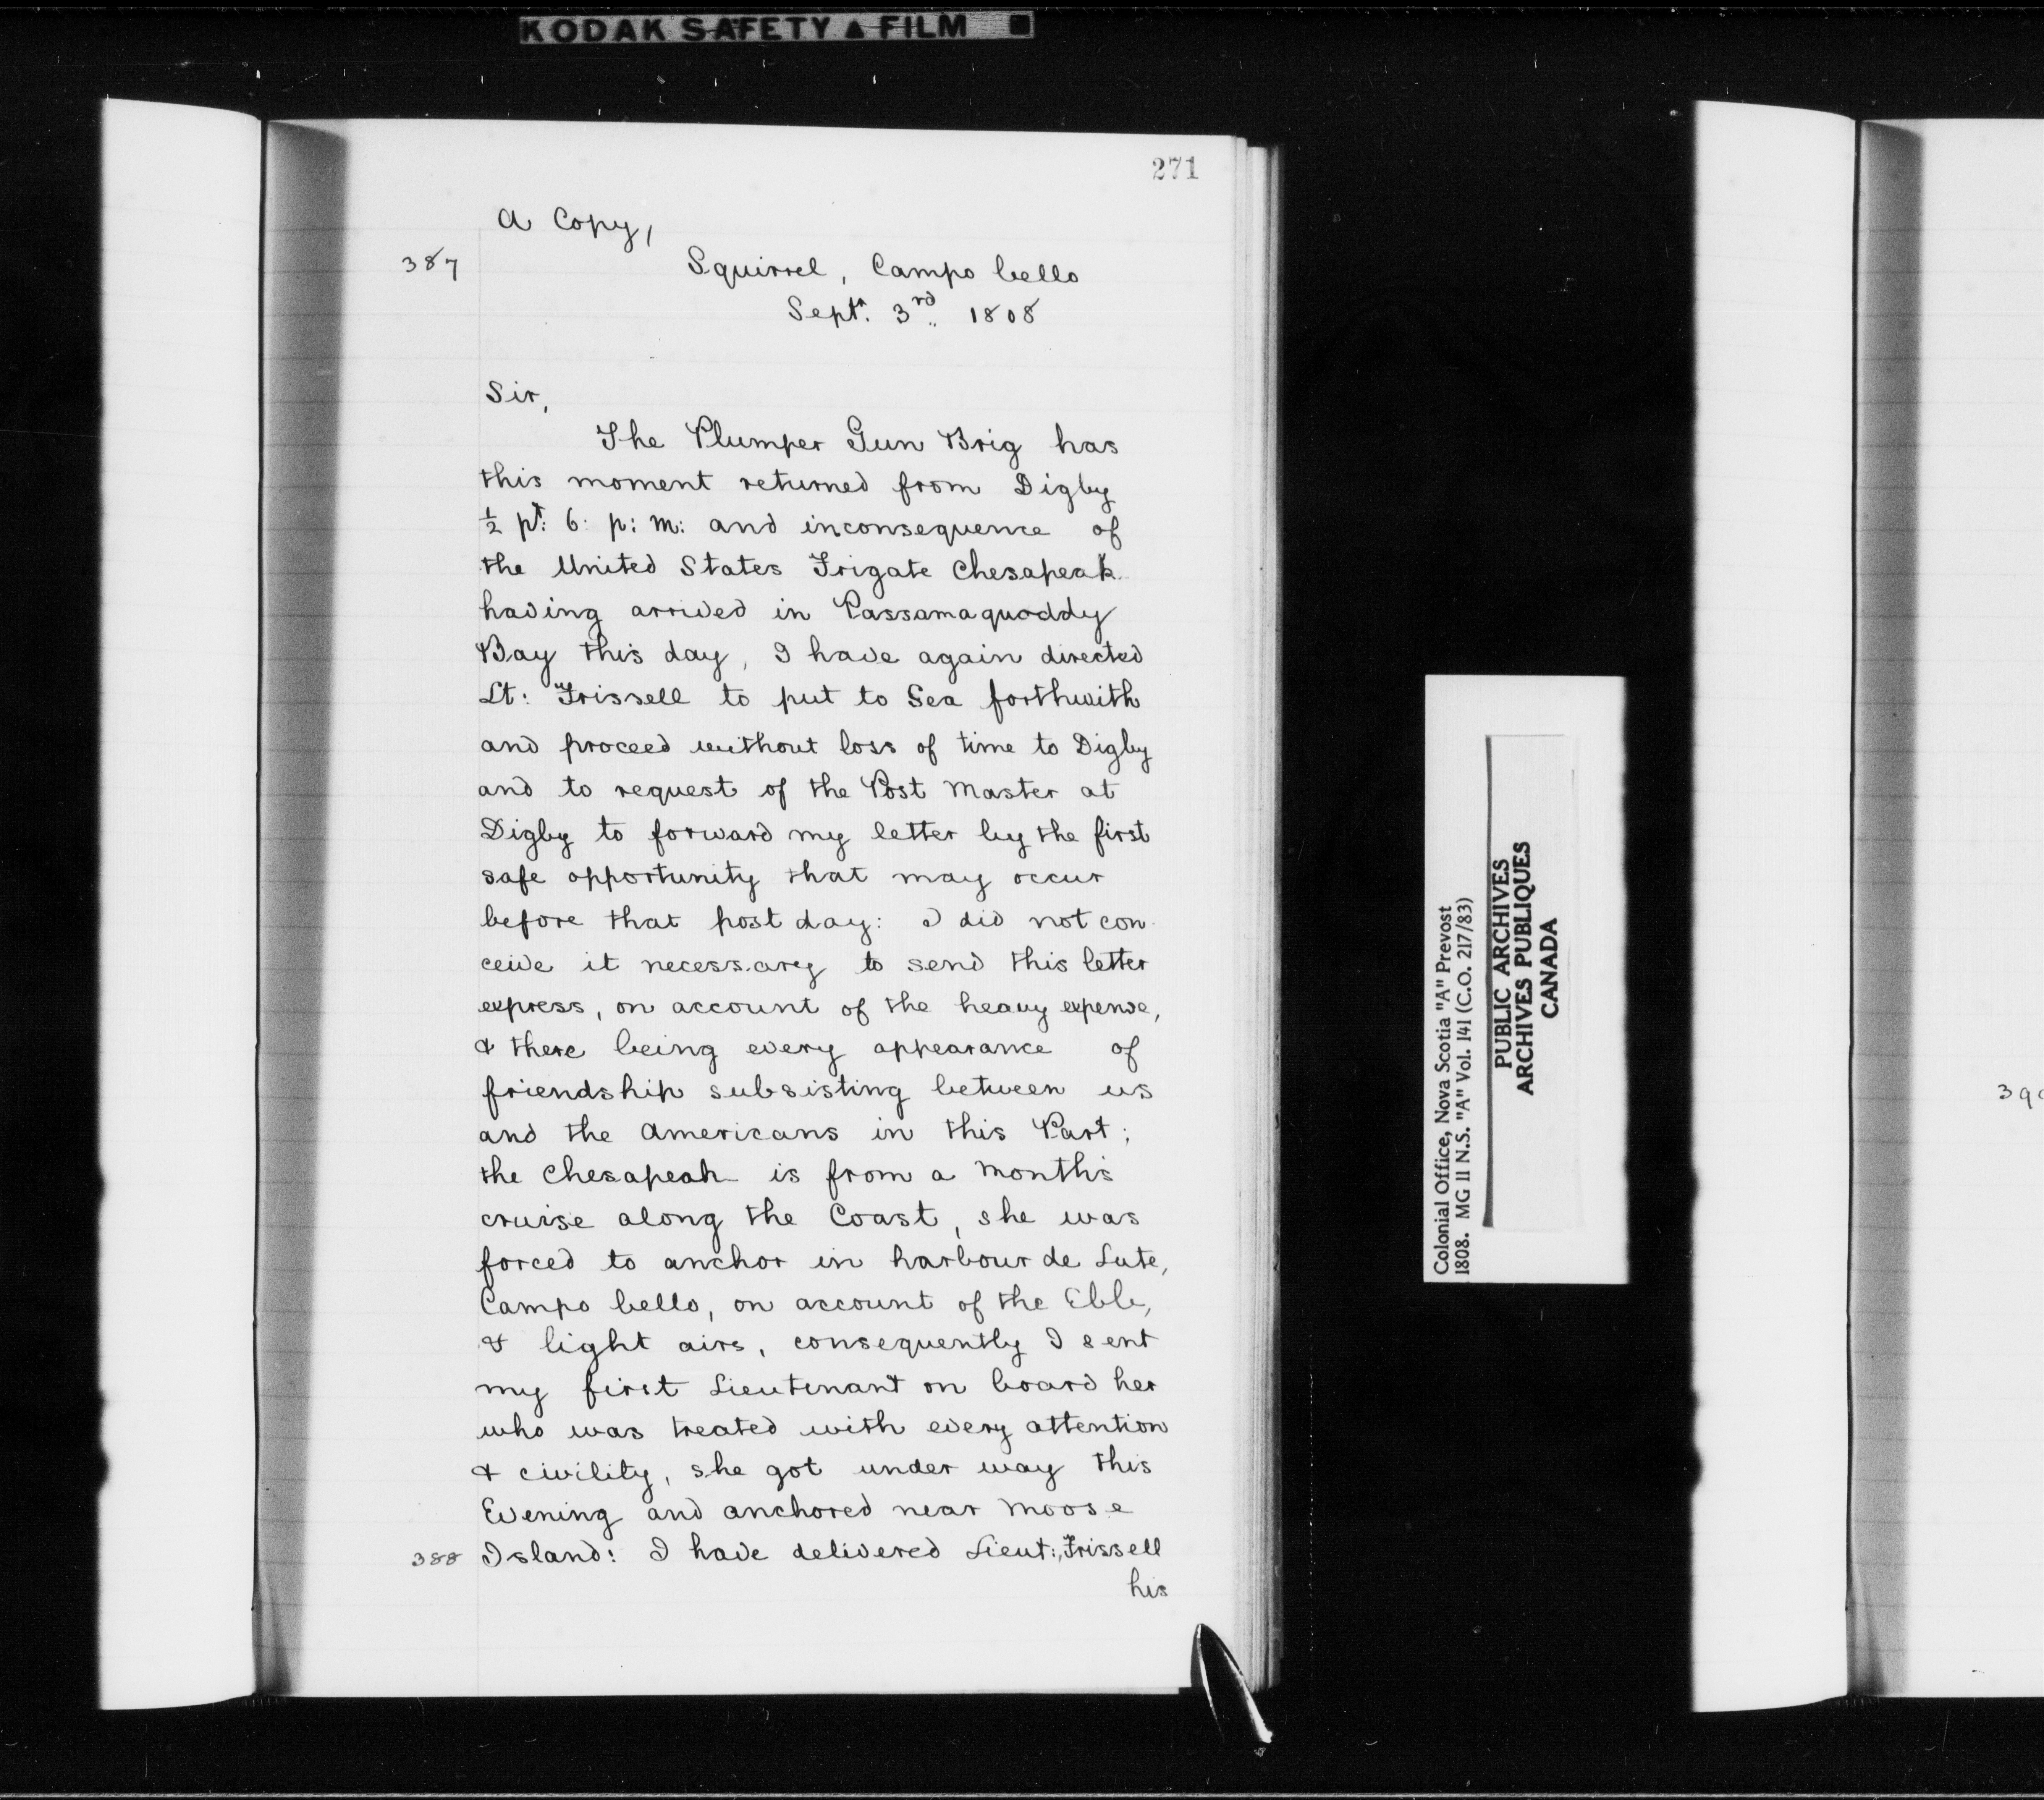 KODAK SAFETY ▲ FILM ■
271
A Copy,
387
Squirrel, Campo bello
Septr. 3rd.. 1808
Sir,
The Plumper Gun Brig has
this moment returned from Digby
½ pt: 6: p: m: and inconsequence of
the United States Frigate Chesapeak
having arrived in Passamaquoddy
Bay this day, I have again directed
Lt: Frissell to put to Sea forthwith
and proceed without loss of time to Digby
and to request of the Post Master at
Digby to forward my letter by the first
safe opportunity that may occur
before that post day: I did not con
ceive it necessary to send this letter
express, on account of the heavy expense,
& there being every appearance of
friendship subsisting between us
and the Americans in this Part;
the Chesapeak is from a months
cruise along the Coast, she was
forced to anchor in harbour de Lute,
Campo bello, on account of the Ebb,
& light airs, consequently I sent
my first Lieutenant on board her
who was treated with every attention
& civility, she got under way this
Evening and anchored near Moose
388 Island: I have delivered Lieut:, Frissell
his
Colonial Office, Nova Scotia "A" Prevost
1808. MG 11 N.S. "A" Vol. 141 (C.O. 217/83)
PUBLIC ARCHIVES
ARCHIVES PUBLIQUES
CANADA